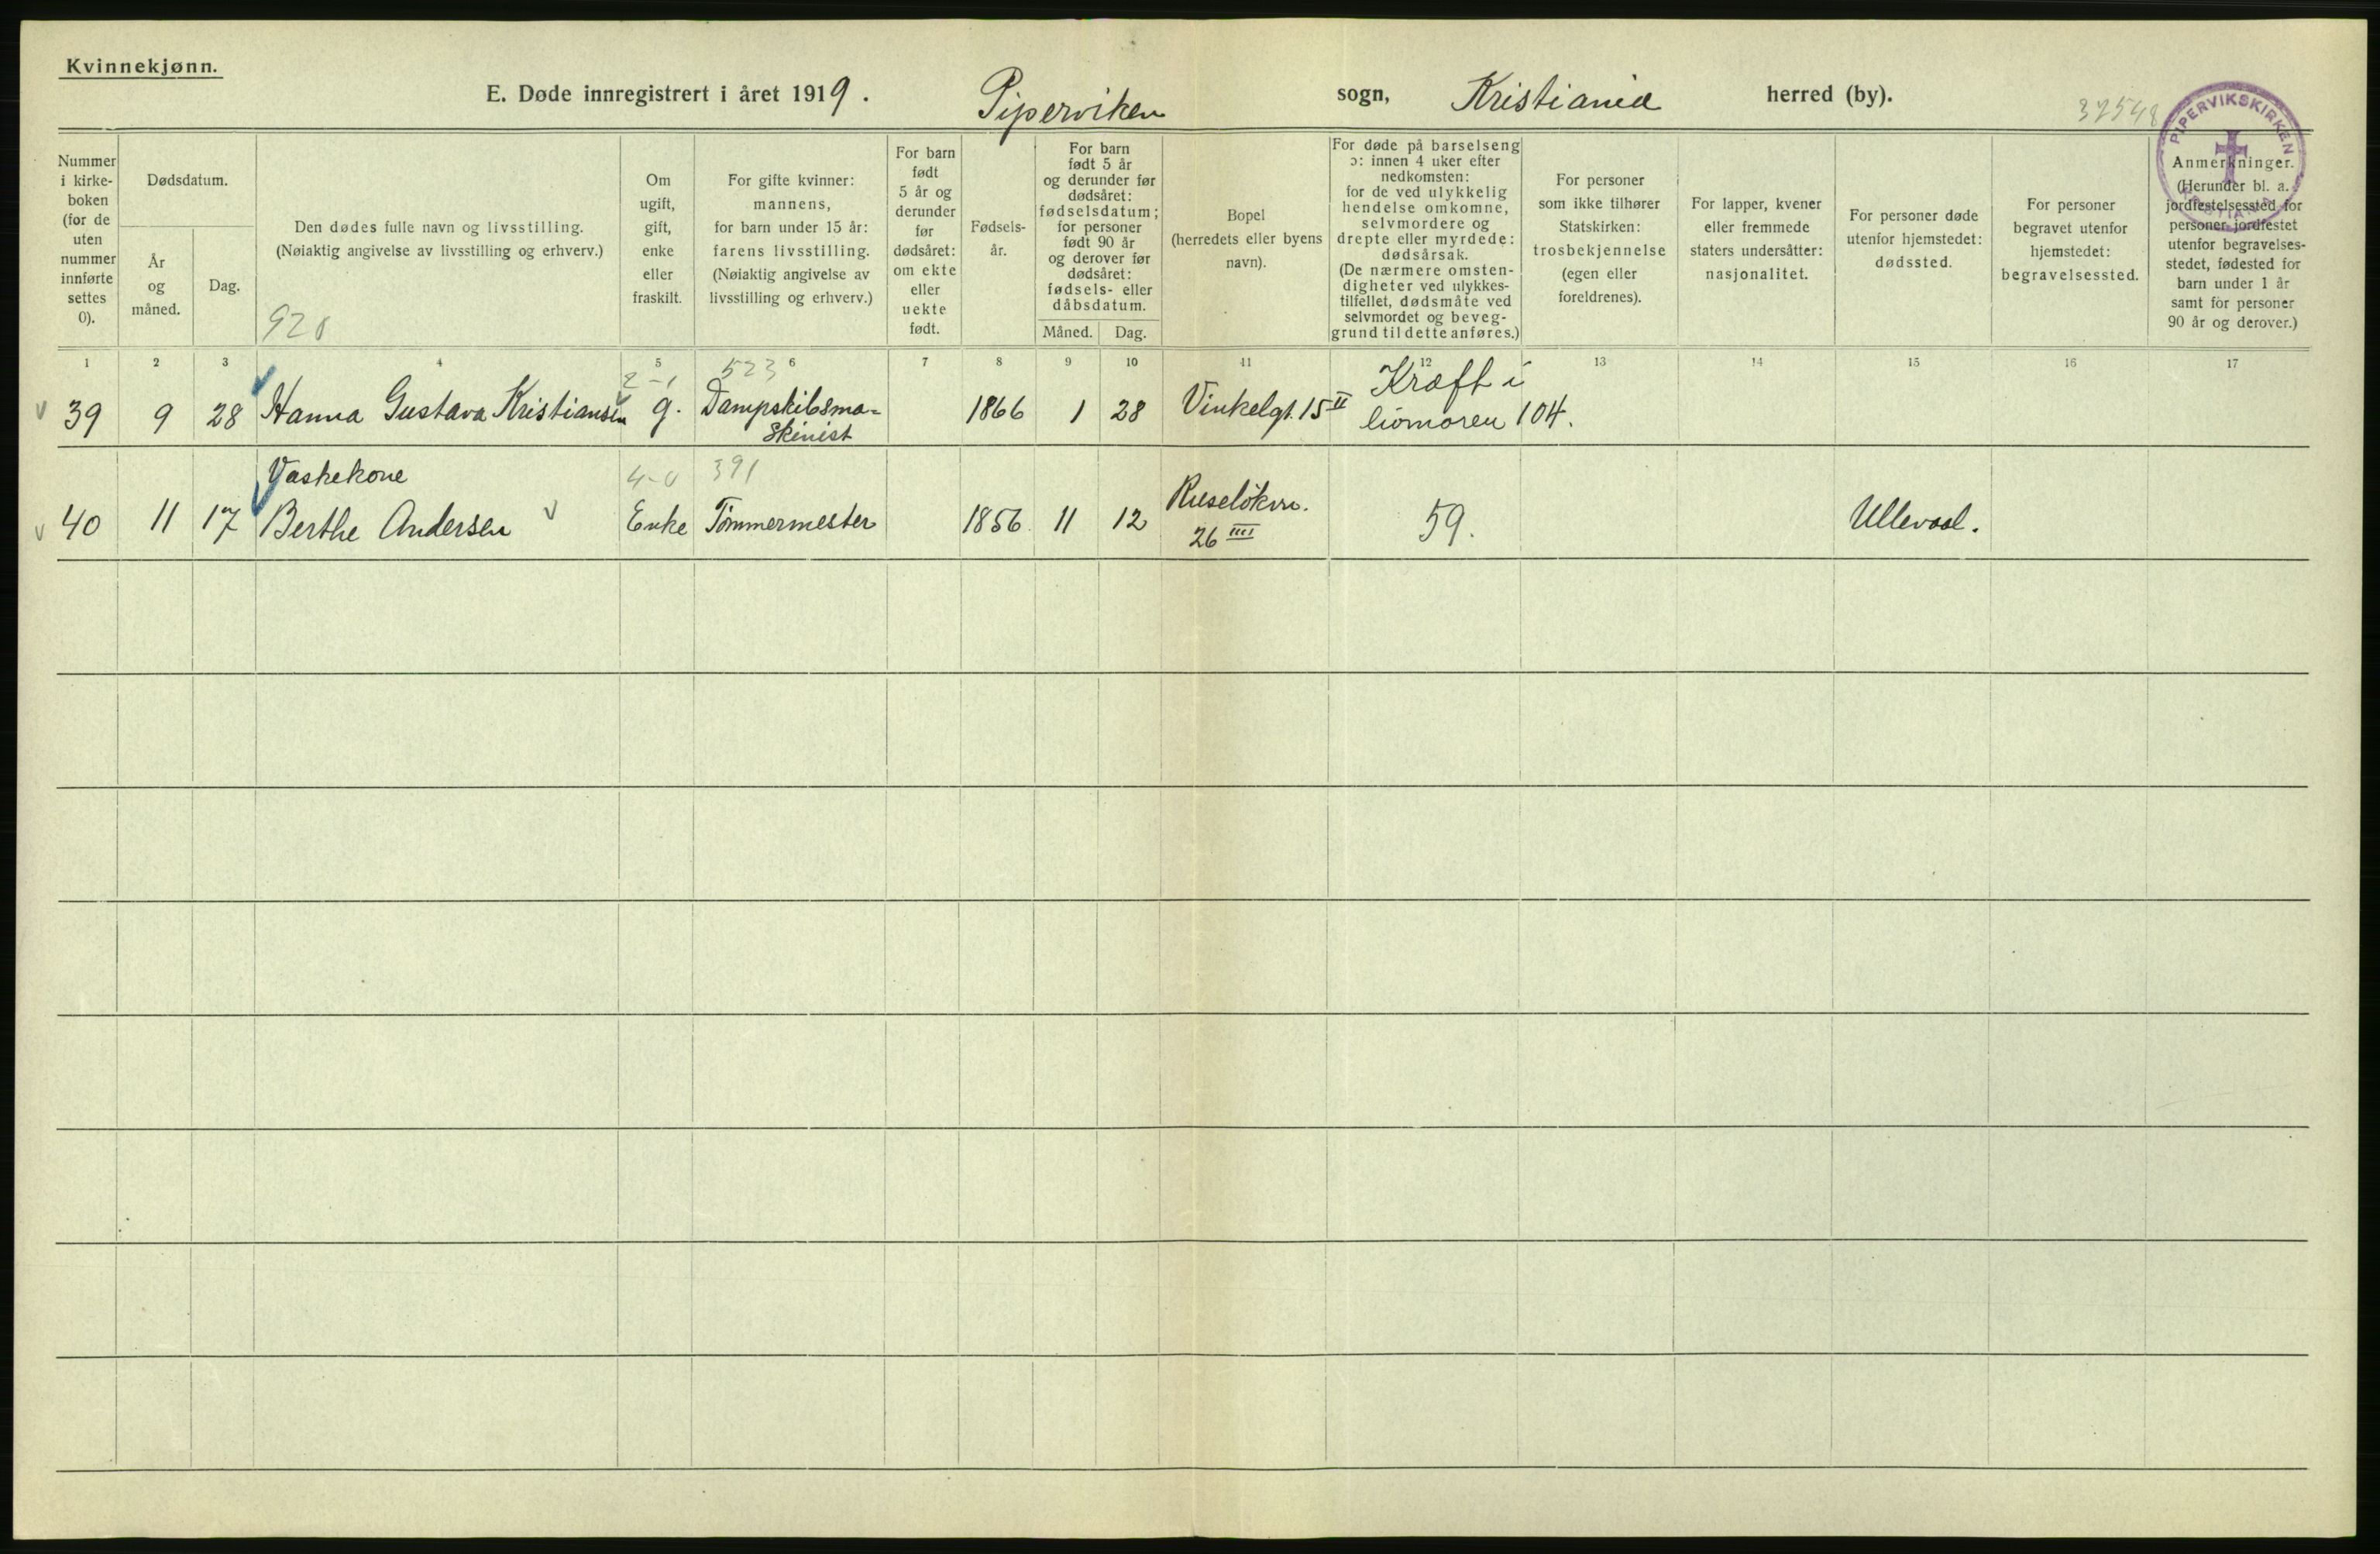 Kvinnekjønn.
E. Døde innregistrert i året 1919. Piperviken sogn, Kristiania herred (by).
32548
PIPERVIKSKIRKEN
Nummer
i kirke-
boken
(for de
uten
nummer
innførte
settes
0).
Dødsdatum.
År
og
måned.
Dag.
Den dødes fulle navn og livsstilling.
(Nøiaktig angivelse av livsstilling og erhverv.)
Om
ugift,
gift,
enke
eller
fraskilt.
For gifte kvinner:
mannens,
for barn under 15 år:
farens livsstilling.
(Nøiaktig angivelse av
livsstilling og erhverv.)
For barn
født
5 år og
derunder
før
dødsåret:
om ekte
eller
uekte
født.
Fødsels-
år.
For barn
født 5 år
og derunder før
dødsåret:
fødselsdatum;
for personer
født 90 år
og derover før
dødsåret:
fødsels- eller
dåbsdatum.
Måned. Dag.
Bopel
(herredets eller byens
navn).
For døde på barselseng
ɔ: innen 4 uker efter
nedkomsten:
for de ved ulykkelig
hendelse omkomne,
selvmordere og
drepte eller myrdede:
dødsårsak.
(De nærmere omsten-
digheter ved ulykkes-
tilfellet, dødsmåte ved
selvmordet og beveg-
grund til dette anføres.)
For personer
som ikke tilhører
Statskirken:
trosbekjennelse
(egen eller
foreldrenes).
For lapper, kvener
eller fremmede
staters undersåtter:
nasjonalitet.
For personer døde
utenfor hjemstedet:
dødssted.
For personer
begravet utenfor
hjemstedet:
begravelsessted.
Anmerkninger.
(Herunder bl. a.
jordfestelsessted for
personer jordfestet
utenfor begravelses-
stedet, fødested for
barn under 1 år
samt for personer
90 år og derover.)
1 2 3 4 5 6 7 8 9 10 11 12 13 14 15 16 17
2-1 523 Kræft i
39 9 28 Hanna Gustava Kristiansen g. Dampskibsma- 1866 1 28 Vinkelgt. 15 II livmoren 104.
skinist
Vaskekone 4-0 391 Ruseløkvn.
40 11 17 Berthe Andersen Enke Tømmermester 1856 11 12 26 IIII 59. Ullevaal.